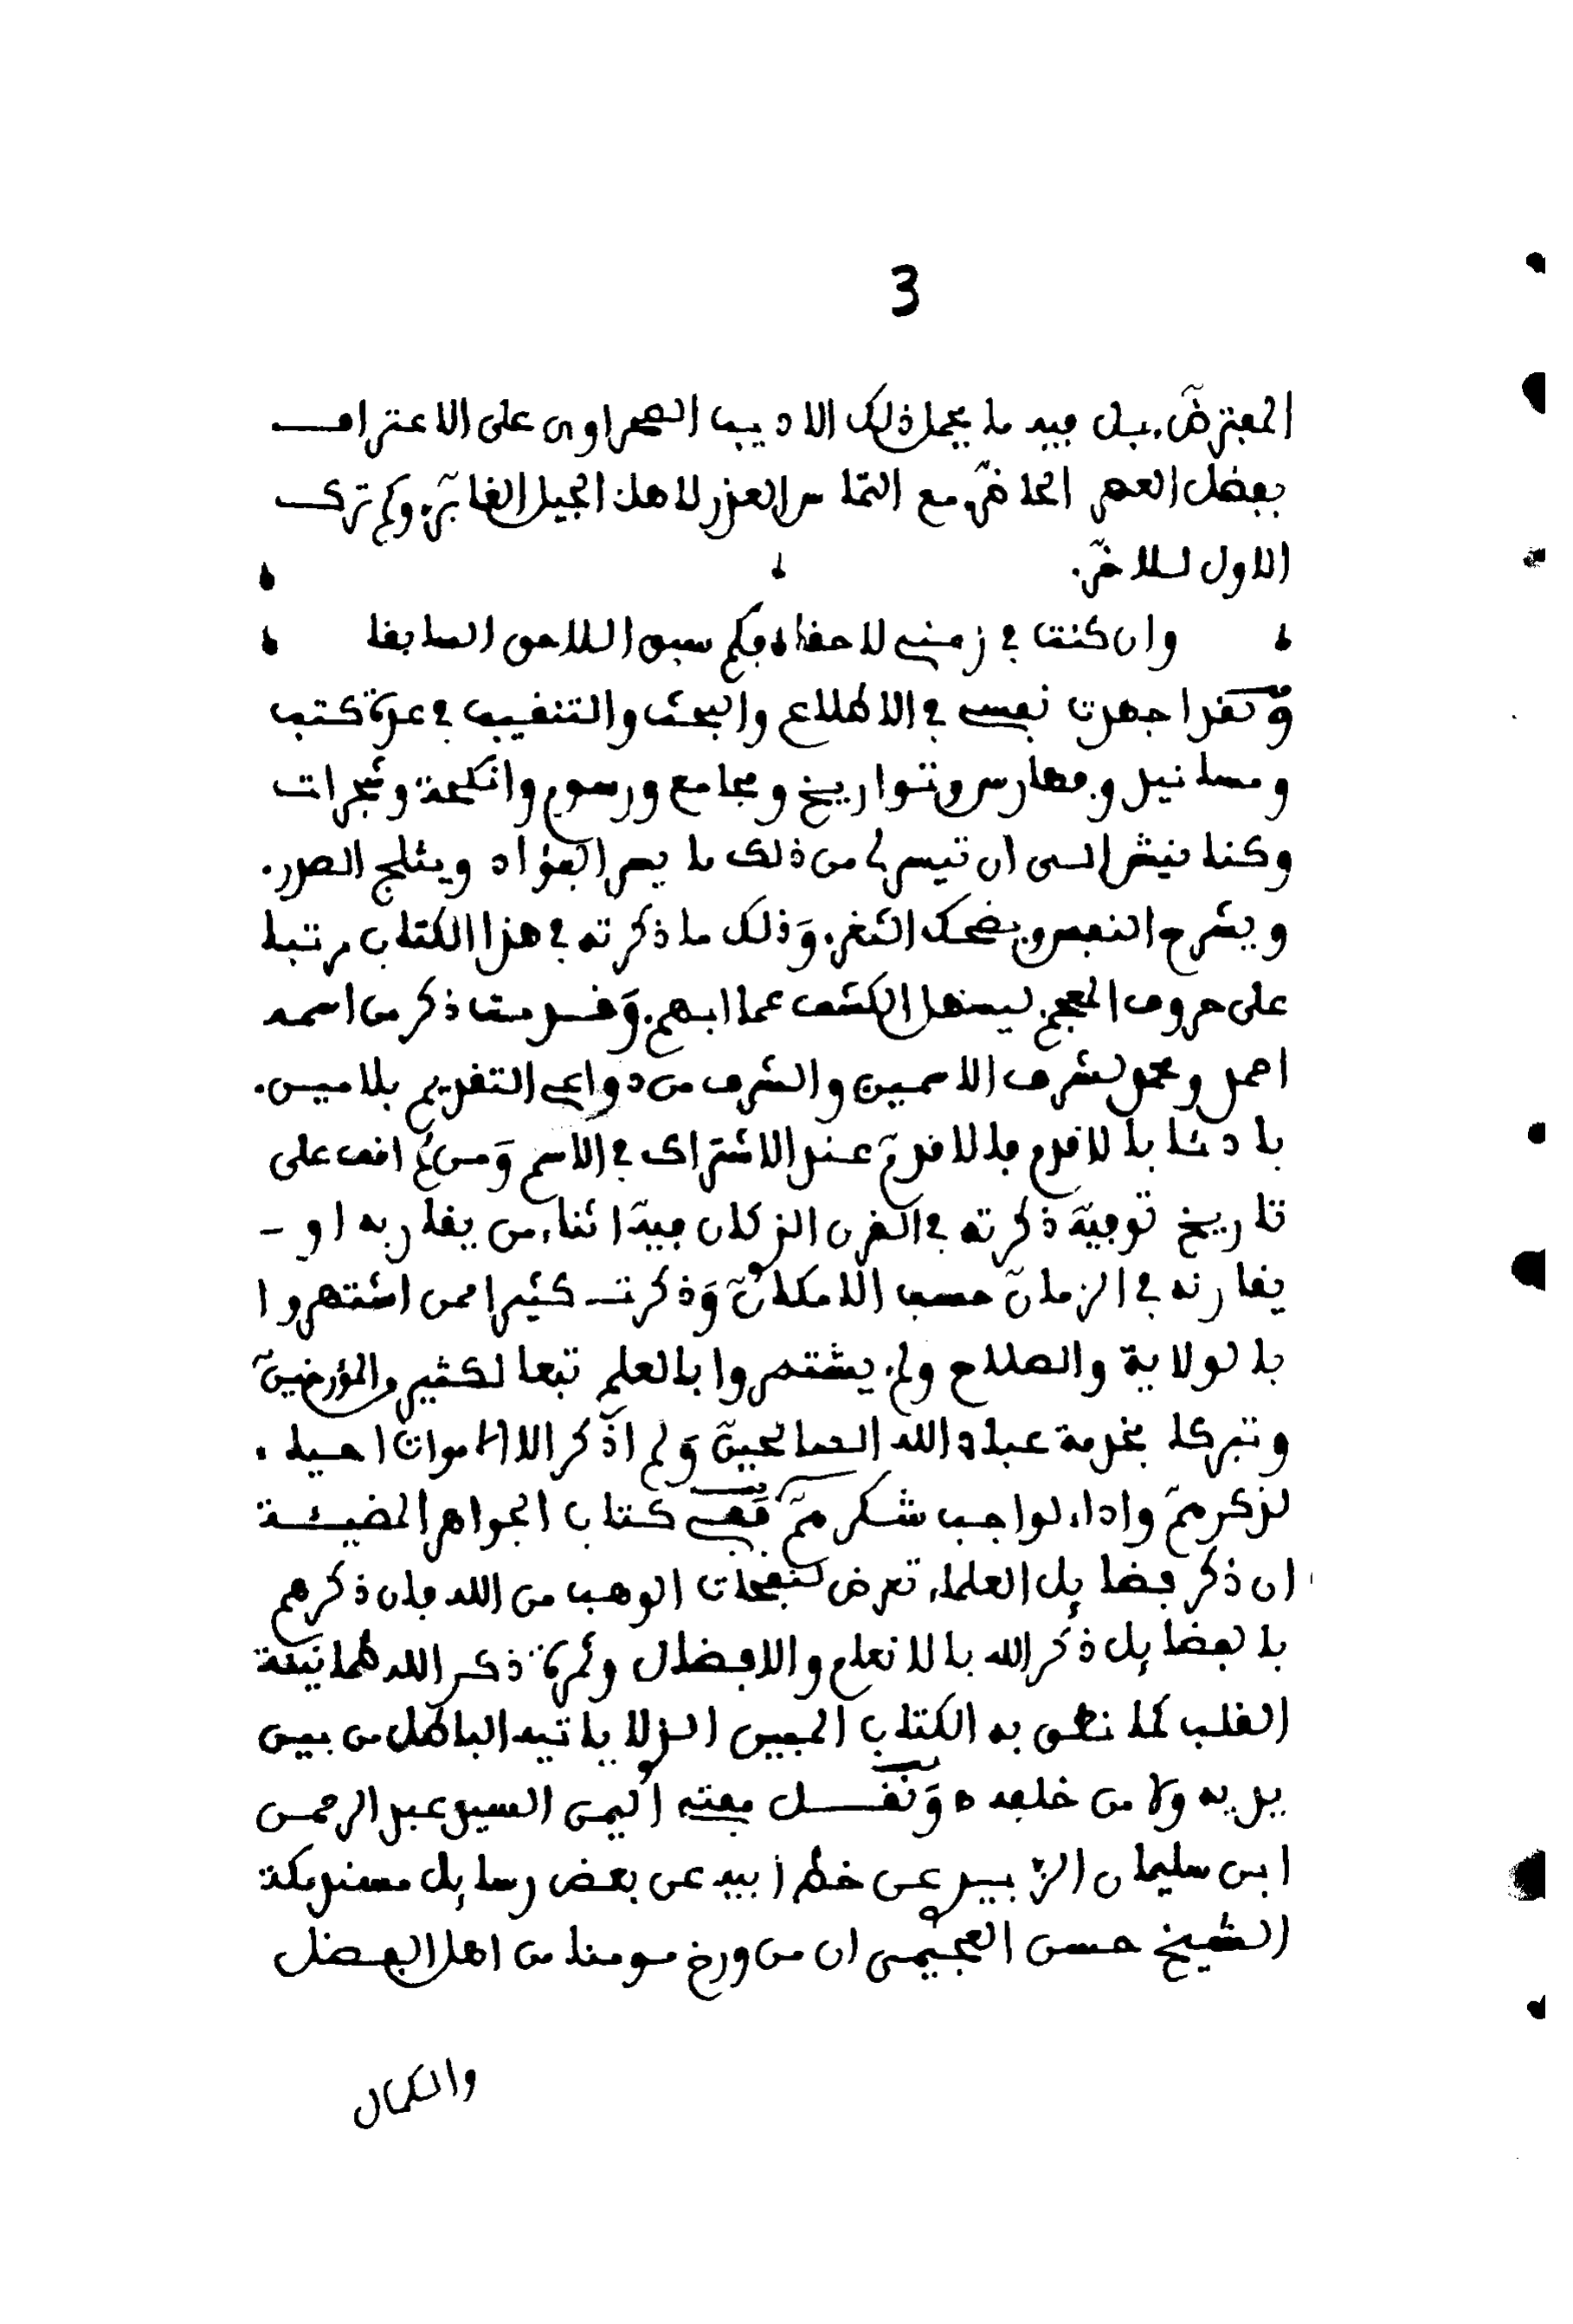 3
المعترض. بل فيه ما يحمل ذلك الاديب الصحراوى على الاعتراف
بفضل العصر الحاضر. مع التماس العذر لاهل الجيل الغابر. وكم ترك
الاول للاخر.
وان كنت في زمني لاحقا فكم سبق اللاحق السابقا
ولقد اجهدت نفسي في الاطلاع والبحث والتنقيب في عدة كتب
ومسانيد وفهارس وتواريخ ومجامع ورسوم وانكحة وشجرات
وكنانيش الى ان تيسر لى من ذلك ما يسر الفؤاد ويثلج الصدر.
ويشرح النفس ويضحك الثغر. وذلك ما ذكرته في هذا الكتاب مرتبا
على حروف المعجم. ليسهل الكشف عما ابهم. وقدمت ذكر من اسمه
احمد ومحمد لشرف الاسمين والشرف من دواعي التقديم بلا مين.
بادئا بالاقدم فالاقدم عند الاشتراك في الاسم ومن لم اقف على
تاريخ توفيه ذكرته في القرن الذي كان فيه اثناء من يقاربه او -
يقارنه في الزمان حسب الامكان وذكرت كثيرا ممن اشتهروا
بالولاية والصلاح ولم يشتهروا بالعلم تبعا لكثير من المؤرخين
وتبركا بخدمة عباد الله الصالحين ولم اذكر الا الاموات احياء
لذكرهم واداء لواجب شكرهم ففي كتاب الجواهر المضيئة
ان ذكر فضايل العلماء تعرض لنفحات الوهب من الله فان ذكرهم
بالفضايل ذكر الله بالانعام والافضال وثمرة ذكر الله طمانينة
القلب كما نطق به الكتاب المبين الذى لا ياتيه الباطل من بين
يديه ولا من خلفه ه ونقل مفتي اليمن السيد عبد الرحمن
ابن سليمان الاهدل عن خط ابيه عن بعض رسايل مسند مكة
الشيخ حسن العجيمى ان من ورخ مومنا من اهل الفضل
والكمال